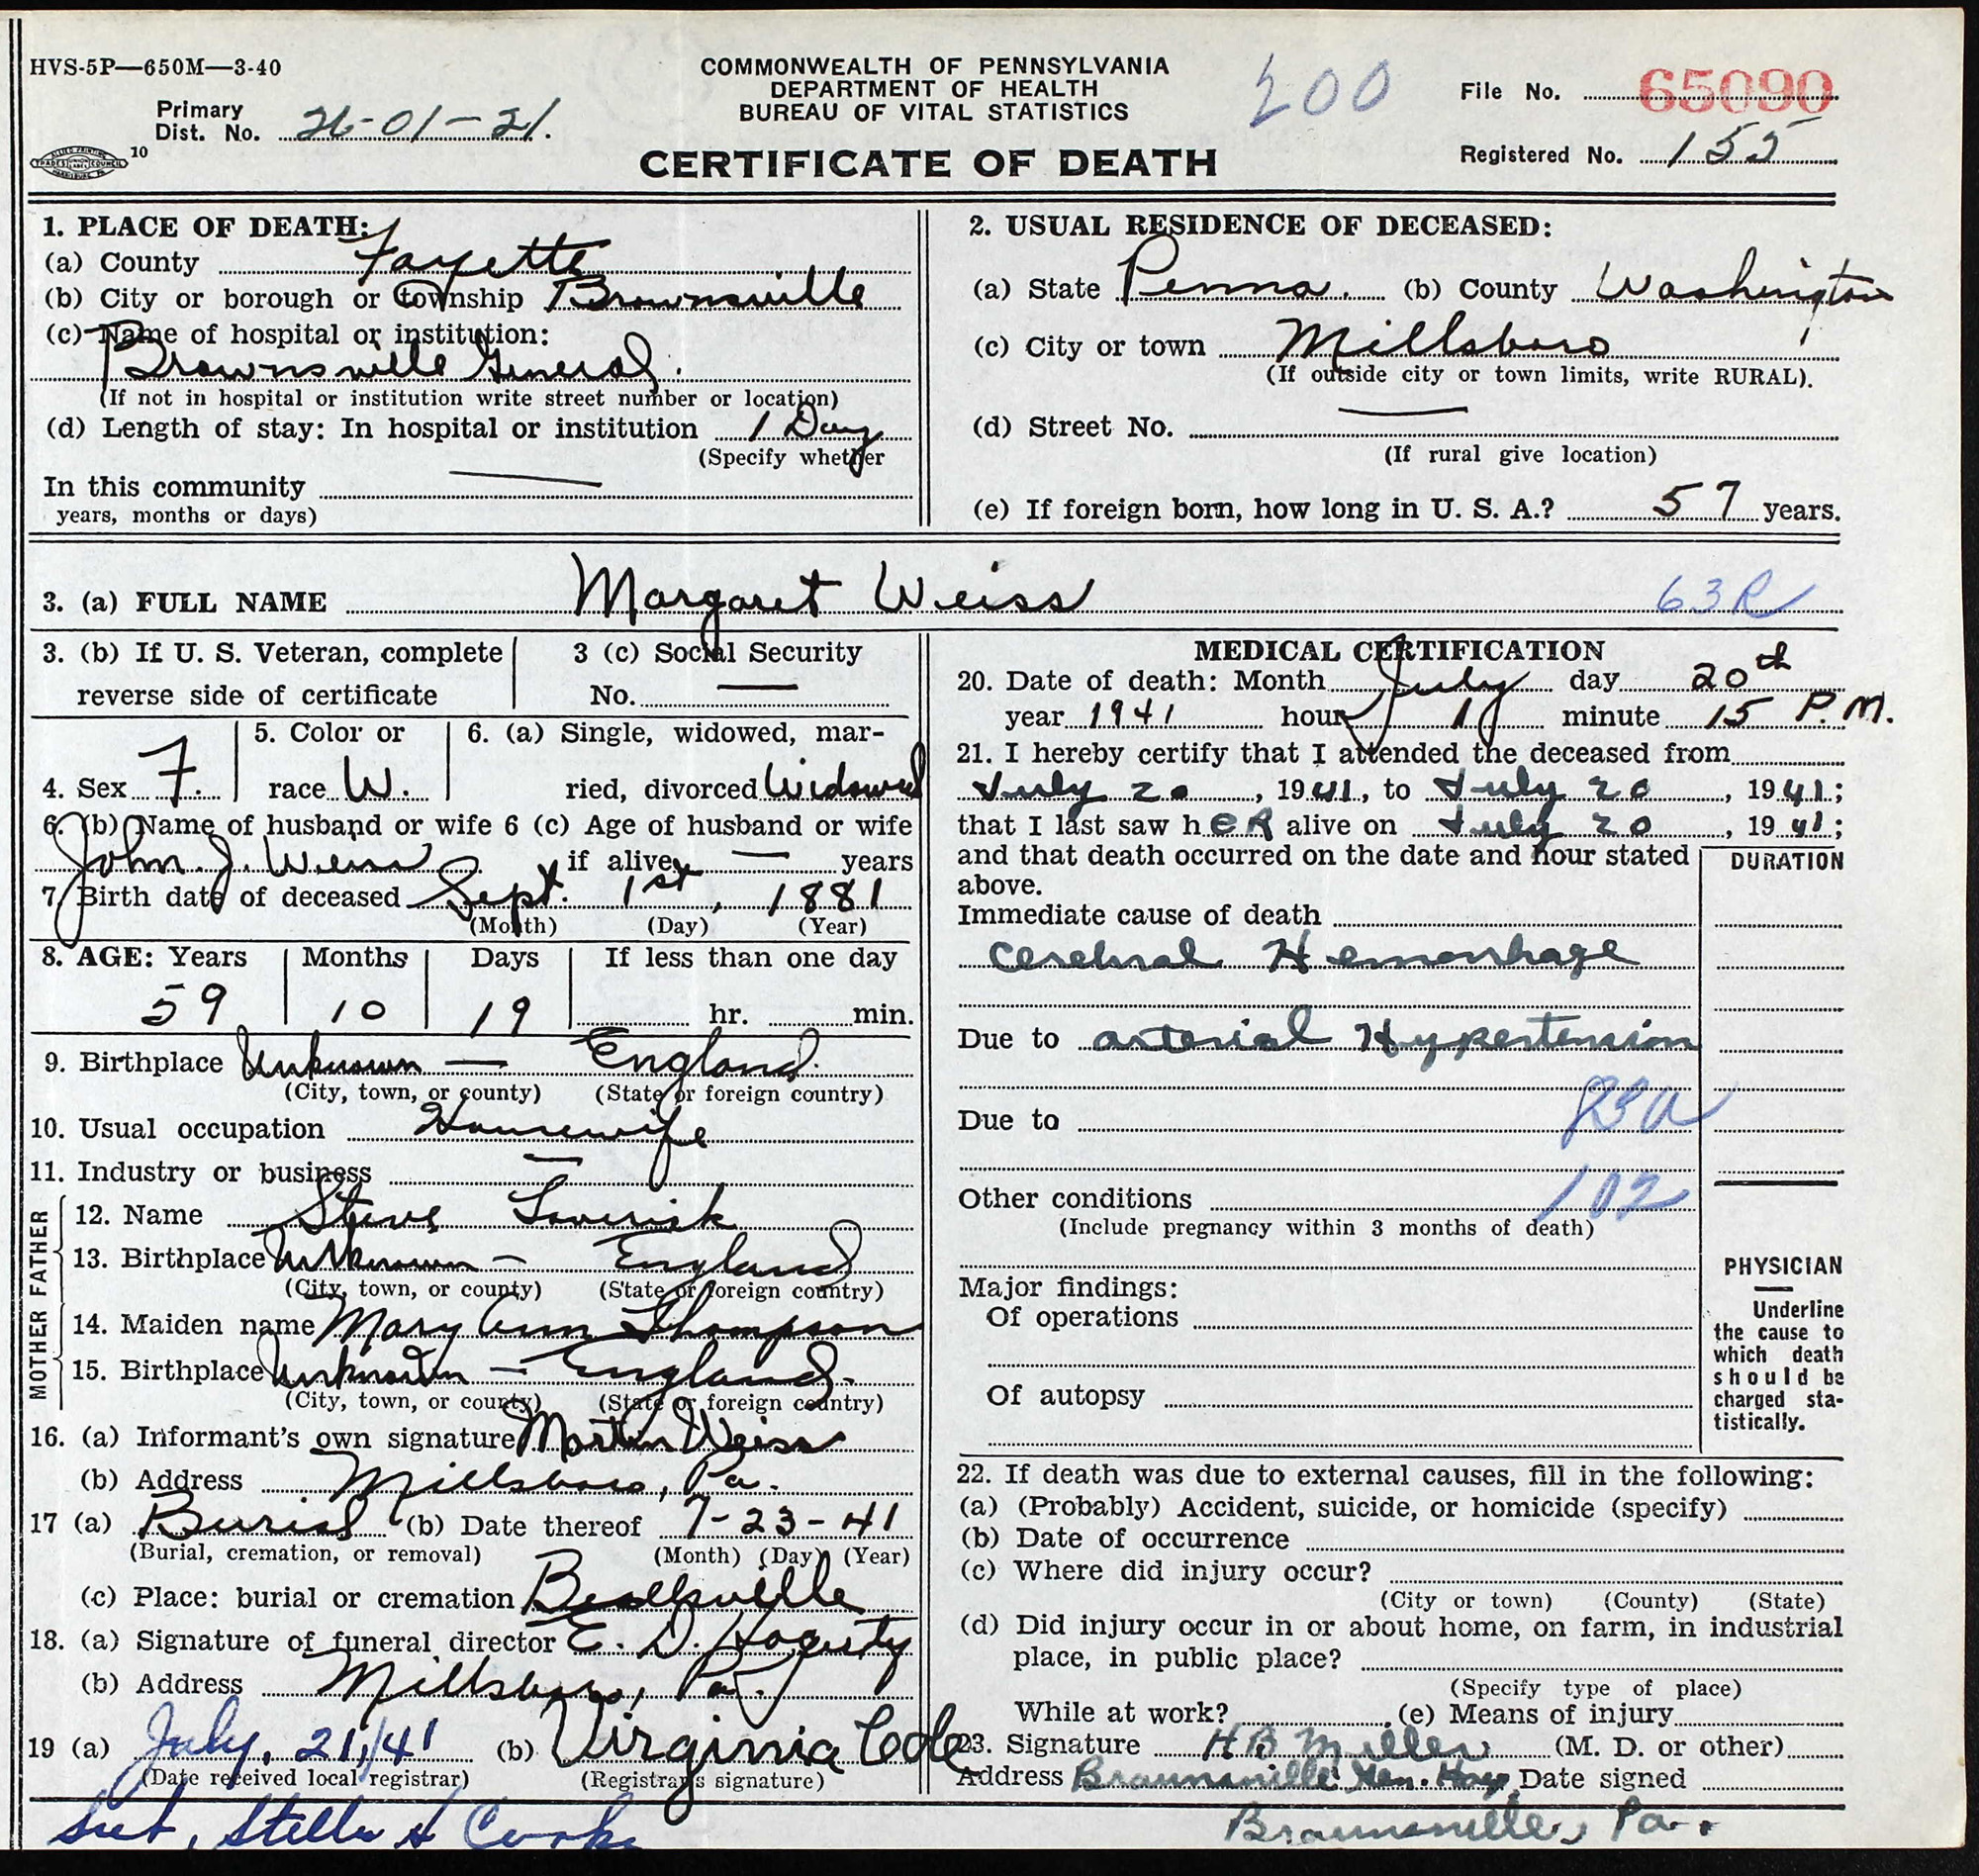 HVS-5P—650M—3-40
COMMONWEALTH OF PENNSYLVANIA
DEPARTMENT OF HEALTH
BUREAU OF VITAL STATISTICS
CERTIFICATE OF DEATH
200
File No. 65090
Registered No. 155
Primary
Dist. No. 26-01-21.
10
1. PLACE OF DEATH:
(a) County Fayette
(b) City or borough or township Brownsville
(c) Name of hospital or institution:
Brownsville General.
(If not in hospital or institution write street number or location)
(d) Length of stay: In hospital or institution 1 Day
(Specify whether
In this community —
years, months or days)
2. USUAL RESIDENCE OF DECEASED:
(a) State Penna. (b) County Washington
(c) City or town Millsboro
(If outside city or town limits, write RURAL).
(d) Street No. —
(If rural give location)
(e) If foreign born, how long in U. S. A.? 57 years.
3. (a) FULL NAME Margaret Weiss 63R
3. (b) If U. S. Veteran, complete
reverse side of certificate
3 (c) Social Security
No. —
4. Sex F. 5. Color or
race W. 6. (a) Single, widowed, mar-
ried, divorced Widowed
6. (b) Name of husband or wife 6 (c) Age of husband or wife
John J. Weiss if alive — years
7. Birth date of deceased Sept. 1st, 1881
(Month) (Day) (Year)
8. AGE: Years Months Days If less than one day
59 10 19 hr. min.
9. Birthplace Unknown — England.
(City, town, or county) (State or foreign country)
10. Usual occupation Housewife
11. Industry or business —
FATHER
12. Name Steve
13. Birthplace Unknown — England
(City, town, or county) (State or foreign country)
MOTHER
14. Maiden name Mary Ann Thompson
15. Birthplace Unknown — England.
(City, town, or county) (State or foreign country)
16. (a) Informant's own signature Martin Weiss
(b) Address Millsboro, Pa.
17 (a) Burial (b) Date thereof 7-23-41
(Burial, cremation, or removal) (Month) (Day) (Year)
(c) Place: burial or cremation Beallsville
18. (a) Signature of funeral director E. D. Hagerty
(b) Address Millsboro, Pa.
19 (a) July, 21,/41 (b) Virginia Cole
(Date received local registrar) (Registrar's signature)
Stella A Cooke
MEDICAL CERTIFICATION
20. Date of death: Month July day 20th
year 1941 hour 1 minute 15 P.M.
21. I hereby certify that I attended the deceased from
July 20, 1941, to July 20, 1941;
that I last saw hER alive on July 20, 1941;
and that death occurred on the date and hour stated
above.
DURATION
Immediate cause of death
Cerebral Hemorrhage
Due to arterial Hypertension
83a
Due to
102
Other conditions
(Include pregnancy within 3 months of death)
Major findings:
Of operations
Of autopsy
PHYSICIAN
—
Underline
the cause to
which death
should be
charged sta-
tistically.
22. If death was due to external causes, fill in the following:
(a) (Probably) Accident, suicide, or homicide (specify)
(b) Date of occurrence
(c) Where did injury occur?
(City or town) (County) (State)
(d) Did injury occur in or about home, on farm, in industrial
place, in public place?
(Specify type of place)
While at work? (e) Means of injury
23. Signature H B Miller (M. D. or other)
Address Brownsville Gen. Hosp, Date signed
Brownsville, Pa.